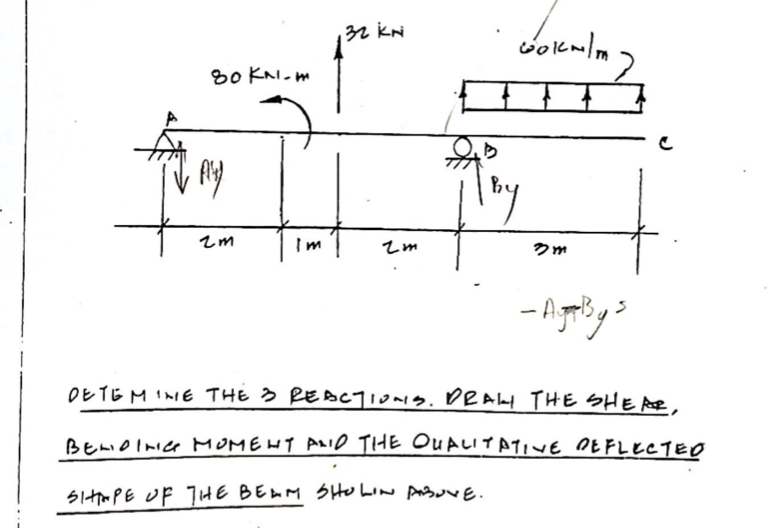 32 KN
60 KN/m
80 KN-m
A
B
C
Ay
By
2m
1m
2m
3m
- Ay + By =
DETEMINE THE 3 REACTIONS. DRAW THE SHEAR,
BENDING MOMENT AND THE QUALITATIVE DEFLECTED
SHAPE OF THE BEAM SHOWN ABOVE.